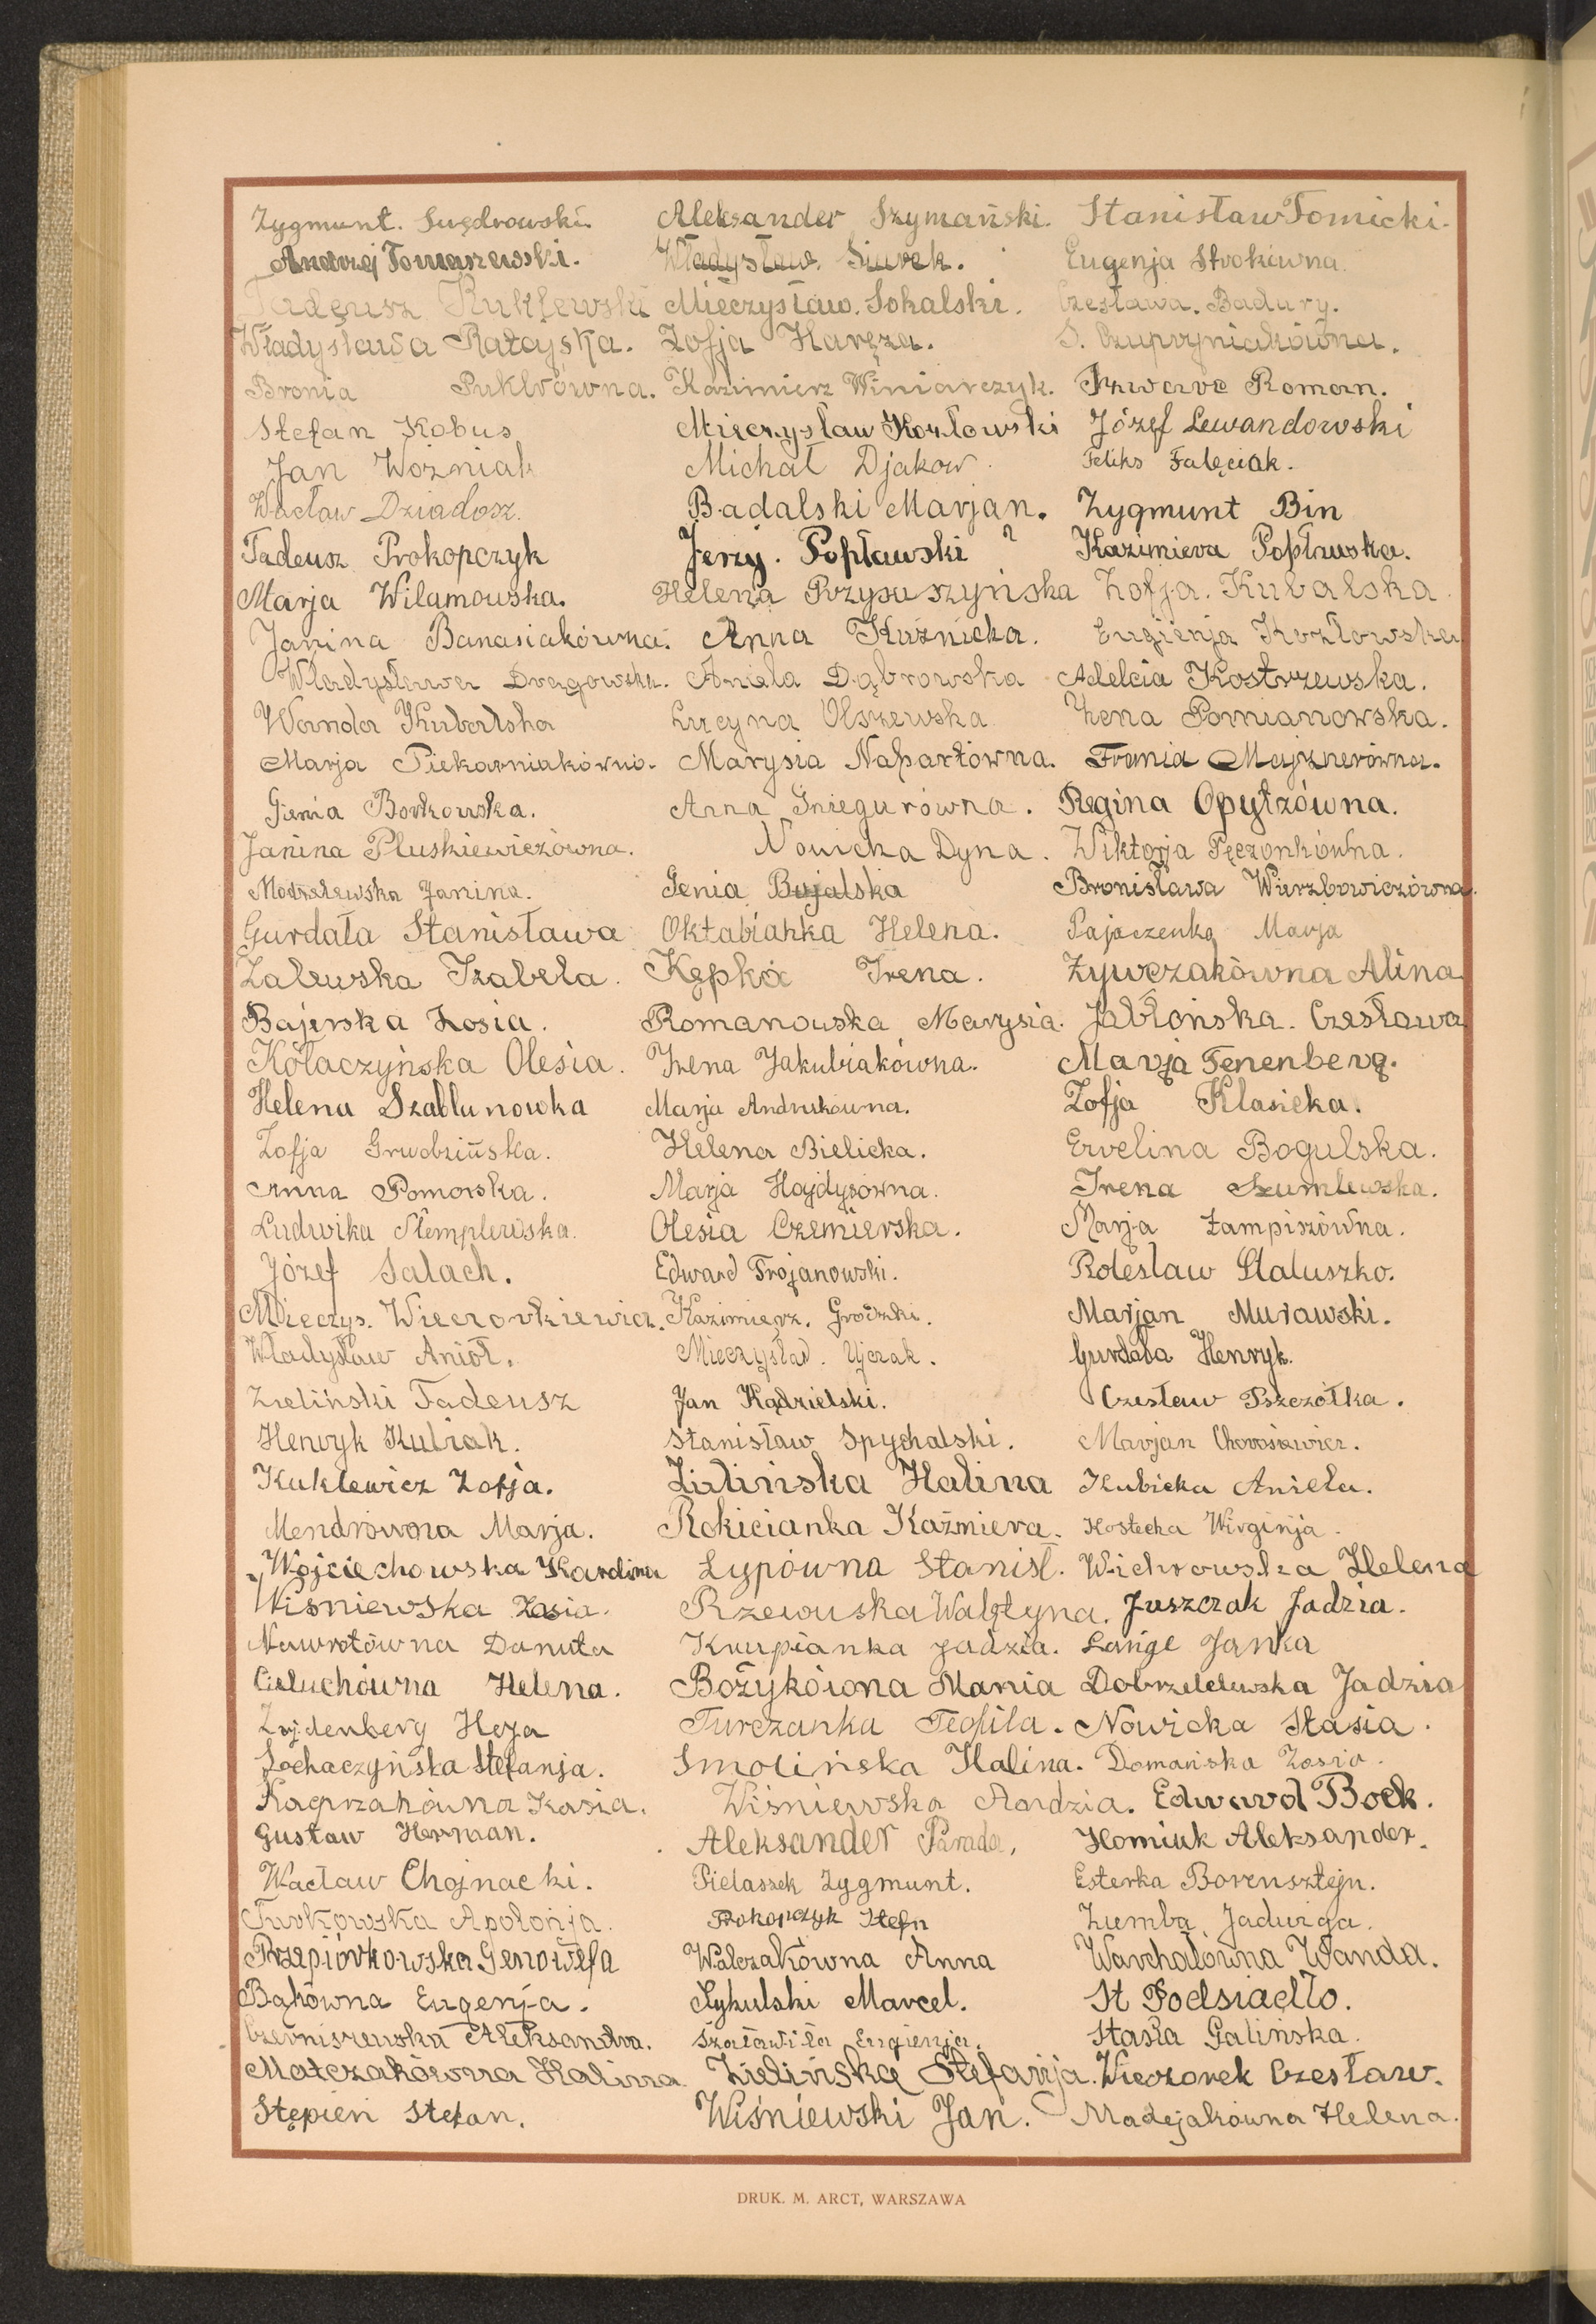 Zygmunt. Swędrowski. Aleksander Szymański. Stanisław Tomicki.
Andrzej Tomaszewski. Władysław Siurek. Eugenja Strokówna.
Tadeusz Kuklewski Mieczysław. Sokalski. Czesława. Badury.
Władysława Ratajska. Zofja Haręza. S. Czupryniakówna.
Bronia Puklrówna. Kazimierz Winiarczyk. Szwarc Roman.
Stefan Kobus Mieczysław Kozłowski Józef Lewandowski
Jan Woźniak Michał Djakow. Feliks Falęciak.
Wacław Dziadosz. Badalski Marjan. Zygmunt Bin
Tadeusz Prokopczyk Jerzy. Popławski Kazimiera Popławska.
Marja Wilamowska. Helena Przysuszyńska Zofja. Kubalska.
Janina Banasiakówna. Anna Kuźnicka. Eugienja Kozłowska
Władysława Dragowska. Aniela Dąbrowska Adelcia Kostrzewska.
Wanda Kubalska Lucyna Olszewska Irena Pomianowska.
Marja Piekarniakówna. Marysia Napartówna. Frania Majznerówna.
Gienia Borkowska. Anna Śniegurówna. Regina Opytzówna.
Janina Pluskiewiczówna. Nowicka Dyna. Wiktorja Pęczonkówna.
Modzelewska Janina. Genia Bujalska Bronisława Wierzbowiczówna.
Gurdała Stanisława Oktabianka Helena. Pajączenka Marja
Zalewska Izabela. Kępka Irena. Żywczakówna Alina
Bajerska Zosia. Romanowska Marysia. Jabłońska. Czesława
Kołaczyńska Olesia. Irena Jakubiakówna. Marja Tenenberg.
Helena Szablunowka Marja Andrukówna. Zofja Klasicka.
Zofja Grudzińska. Helena Bielicka. Ewelina Bogulska.
Anna Pomorska. Marja Hajdysówna. Irena Szumlewska.
Ludwika Stemplewska. Olesia Czemierska. Marja Zampiszówna.
Józef Salach. Edward Trojanowski. Bolesław Staluszko.
Mieczys. Wieczorkiewicz. Kazimierz. Grodzki. Marjan Murawski.
Władysław Anioł. Mieczysław. Ujczak. Gurdała Henryk.
Zieliński Tadeusz Jan Kądzielski. Czesław Pszczółka.
Henryk Kubiak. Stanisław Spychalski. Marjan Chorosiewicz.
Kuklewicz Zofja. Zielińska Halina Kubicka Aniela.
Mendrówna Marja. Rokicianka Kaźmiera. Kostecka Wirginja.
Wojciechowska Karolina Lypówna Stanisł. Wichrowska Helena
Wiśniewska Zosia. Rzewuska Walętyna. Juszczak Jadzia.
Nawrotówna Danuta Krupianka Jadzia. Lange Janka
Cieluchówna Helena. Bożykówna Mania Dobrzelelewska Jadzia
Zajdenberg Heja Turczanka Teofila. Nowicka Stasia.
Sochaczyńska Stefanja. Smolińska Halina. Domańska Zosia.
Kacprzakówna Kasia. Wiśniewska Aandzia. Edward Bock.
Gustaw Herman. Aleksander Parada. Homiuk Aleksander.
Wacław Chojnacki. Pielaszek Zygmunt. Esterka Borensztejn.
Turkowska Apolonja. Prokopczyk Stefn Ziemba Jadwiga.
Przepiórkowska Genowefa Walczakówna Anna Warchałówna Wanda.
Bąkówna Eugenja. Sykulski Marcel. St Podsiadło.
Czerniszewska Aleksandra. Szaławiła Eugienja. Stasia Galińska.
Matczakówna Halina Zielińska Stefanija. Wieczorek Czesław.
Stępień Stefan. Wiśniewski Jan. Madejakówna Helena.
DRUK. M. ARCT, WARSZAWA